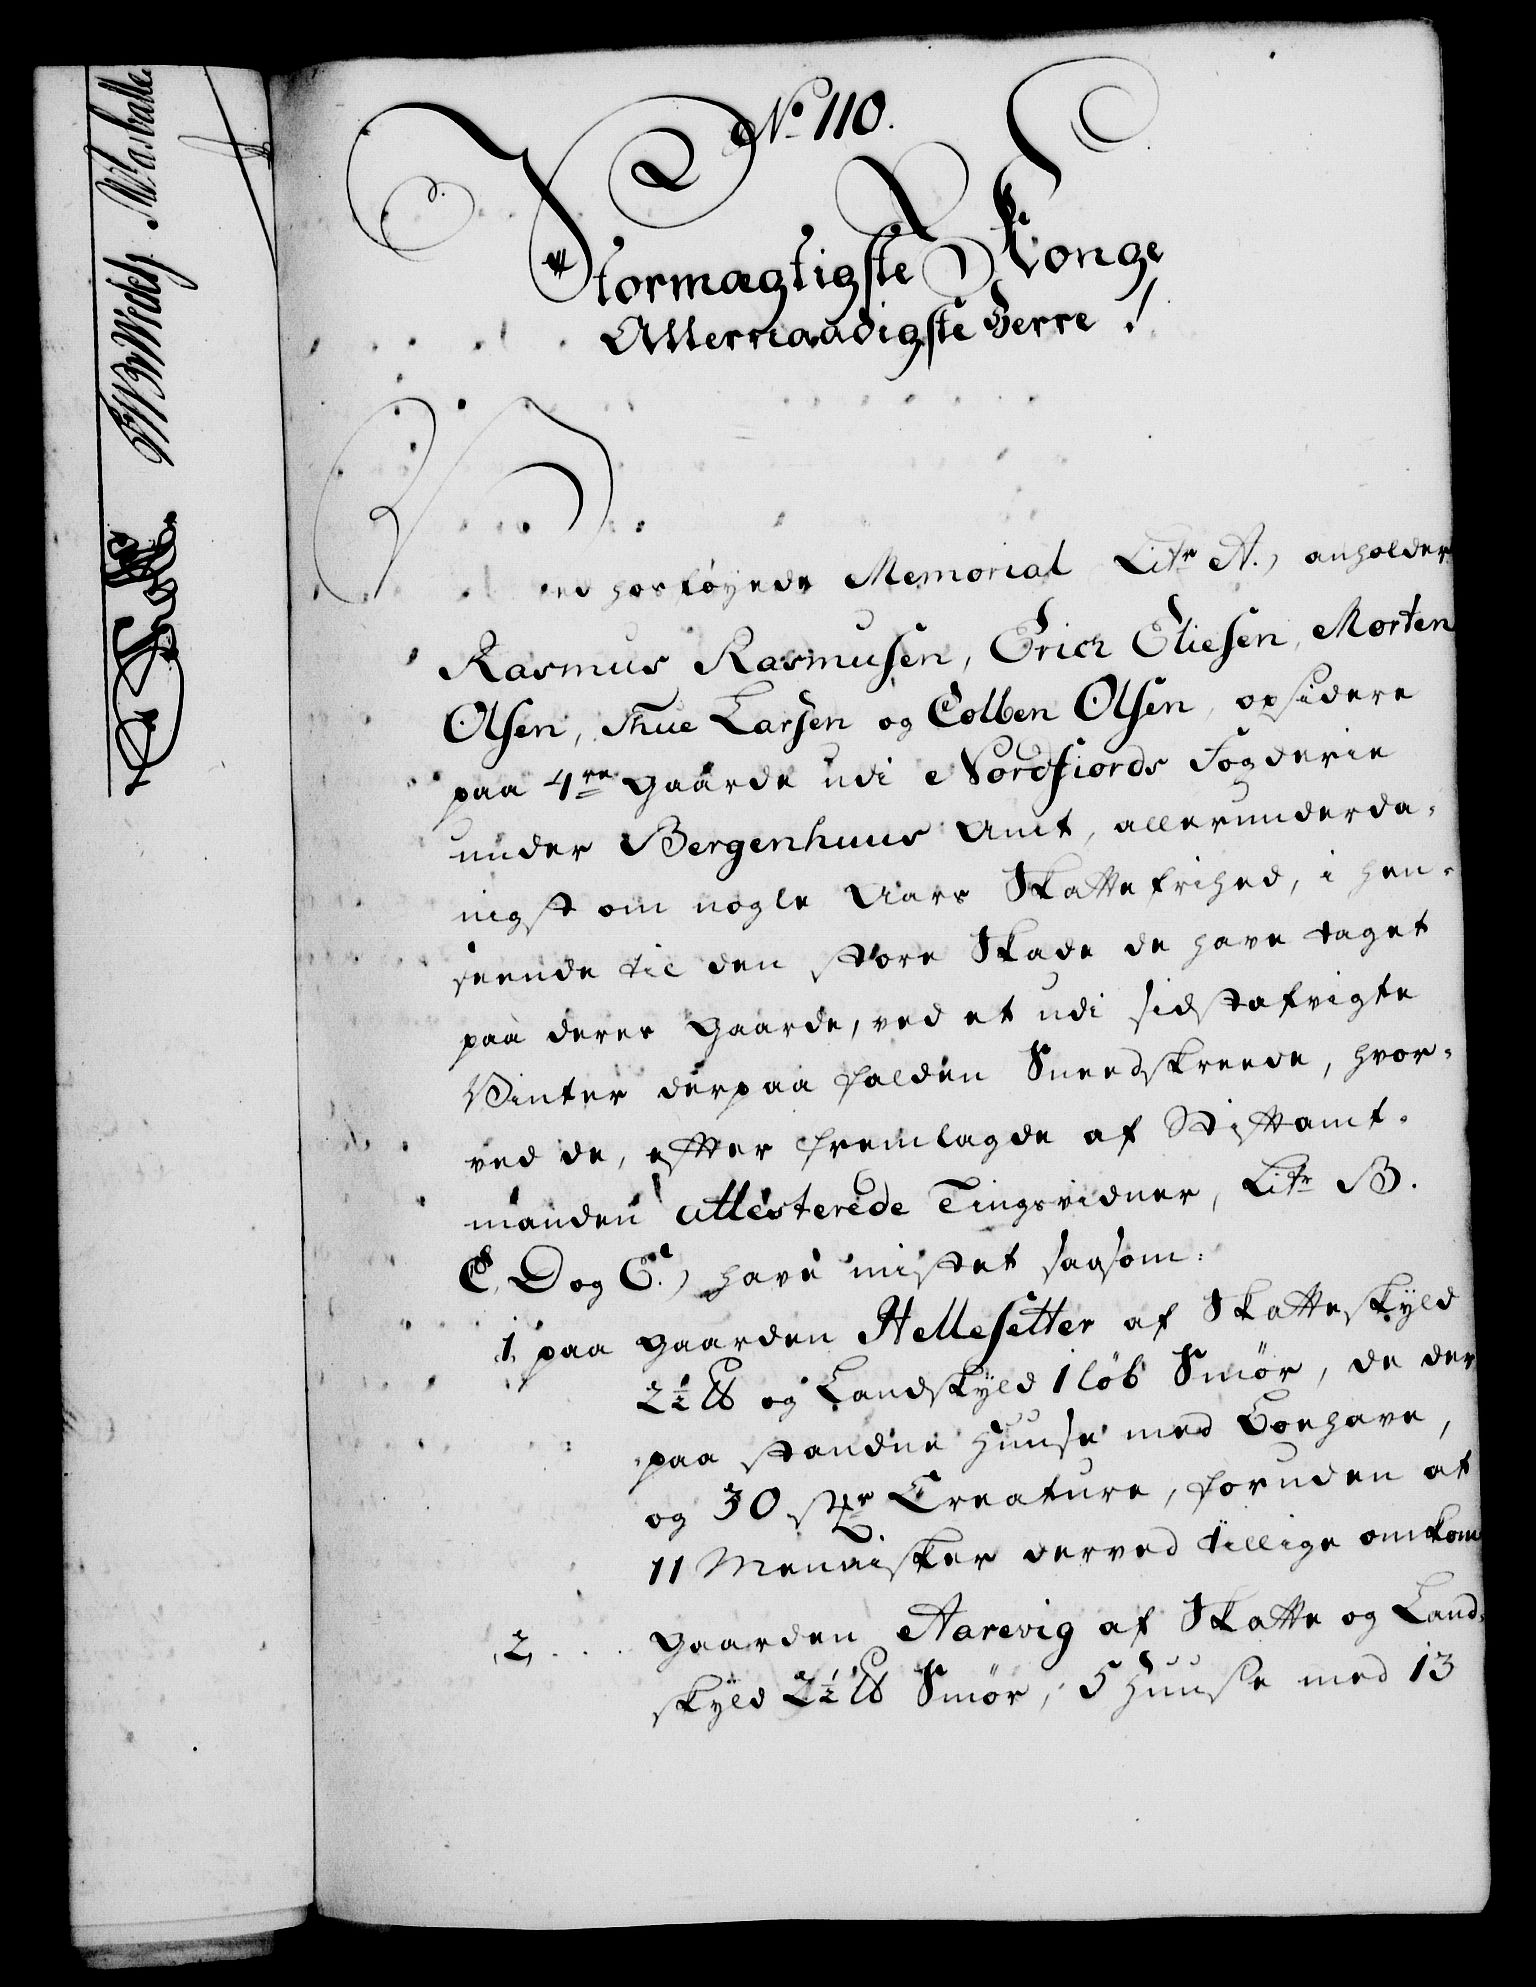 No. 110.
Stormægtigste Konge
Allernaadigste Herre!
Ved hosføyede Memorial Litr A.) anholder
Rasmus Rasmusen, Erich Eliesen, Morten
Olsen, Thue Larsen og Colben Olsen, opsidere
paa 4re Gaarde udi Nordfiords Fogderie
under Bergenhuus Amt, allerunderda-
nigst om nogle Aars Skattefrihed, i hen-
seende til den store Skade de have taget
paa deres Gaarde, ved et udi sidstafvigte
Vinter derpaa falden Sneedskreede, hvor-
ved de, efter fremlagde af Stiftamt-
manden attesterede Tingsvidner, Litr B.
C, D og E.) have mistet saasom:
1, paa Gaarden Hellesetter af Skatteskyld
2½ ℔ og Landskyld 1 løb Smør, de der
paa standne Huuse med Boehave,
og 30 stkr Creature, foruden at
11 Mennisker derved tillige omkom
2, . . . Gaarden Aarevig af Skatte og Land-
skyld 2½ ℔ Smør, 5 Huuse med 13